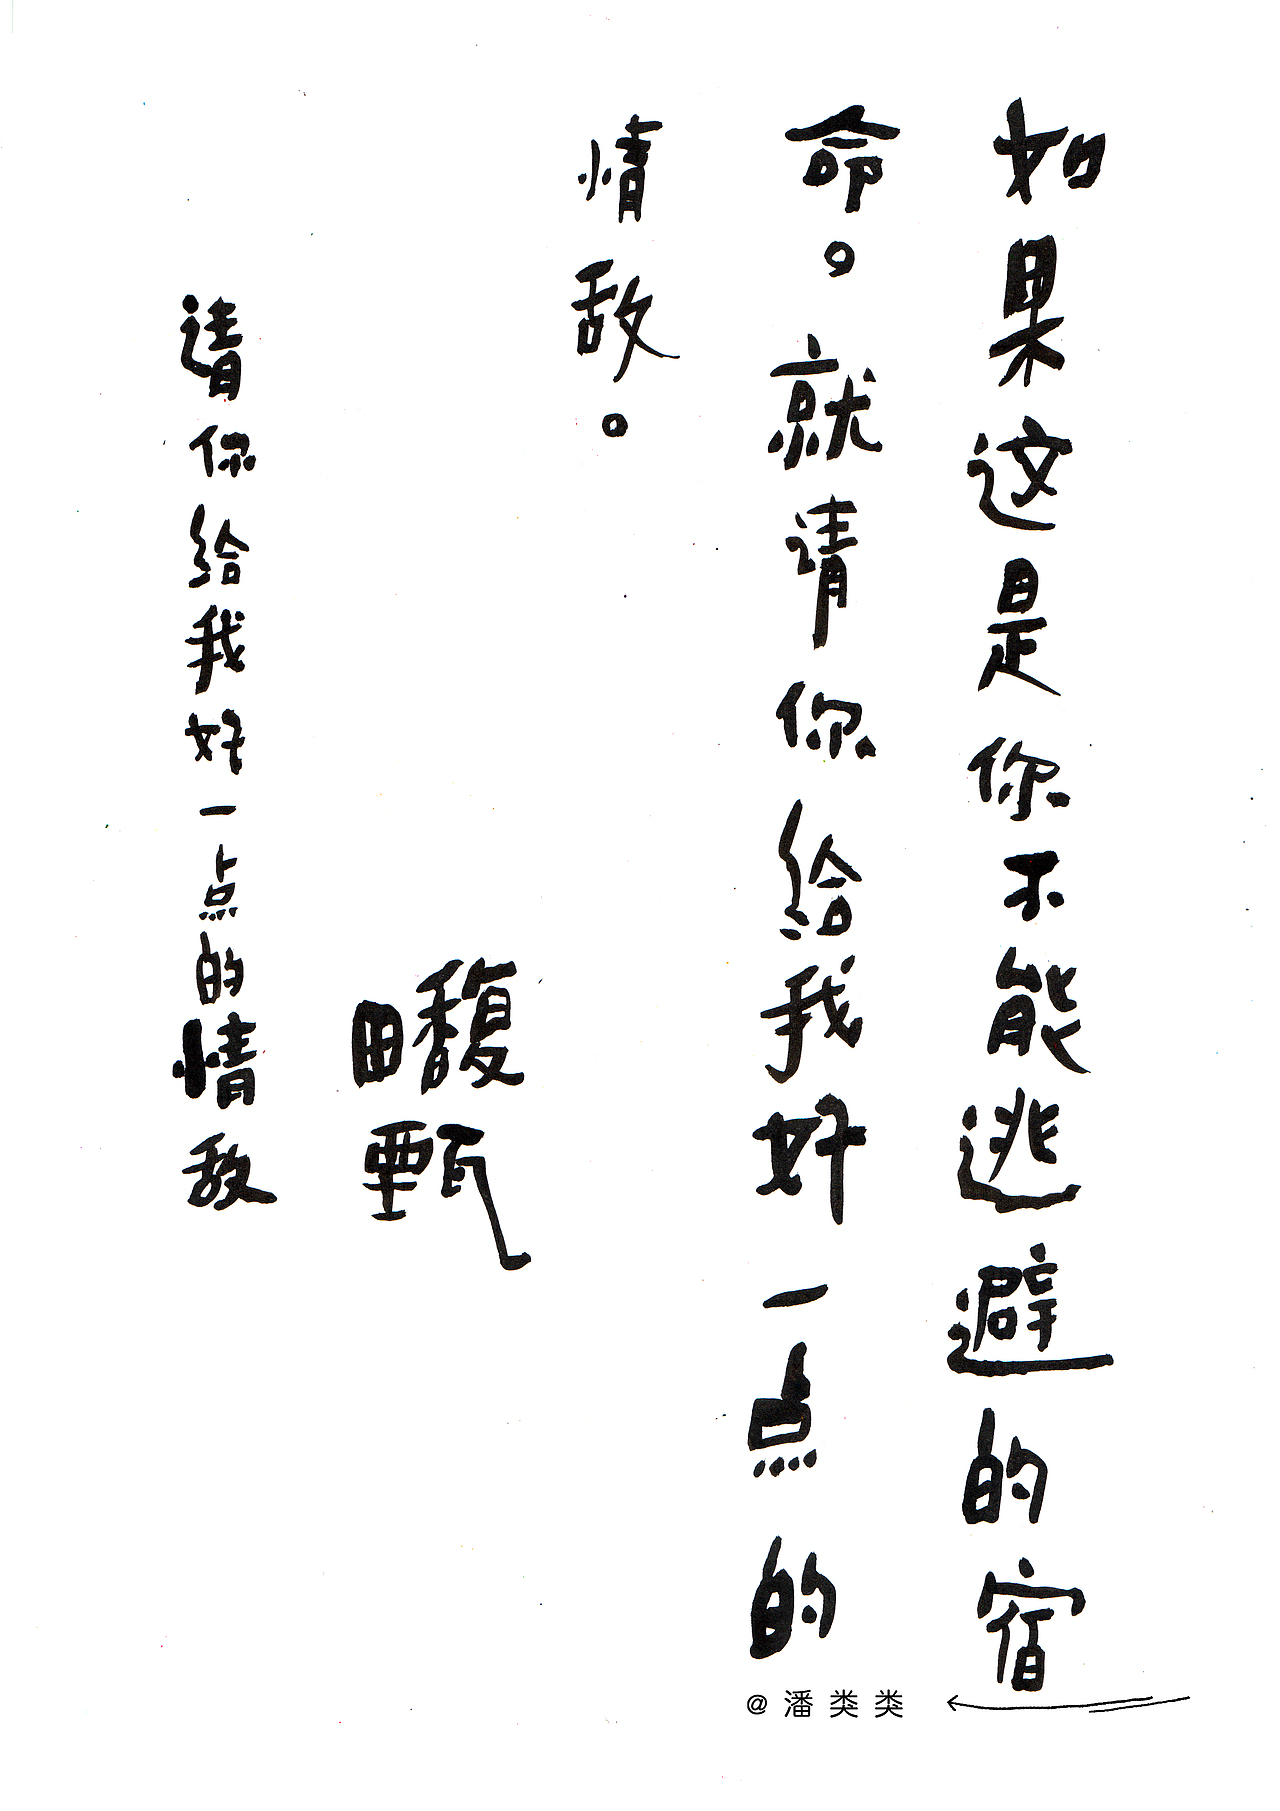 如果这是你不能逃避的宿
命。就请你给我好一点的
情敌。
田馥甄
请你给我好一点的情敌
@潘类类